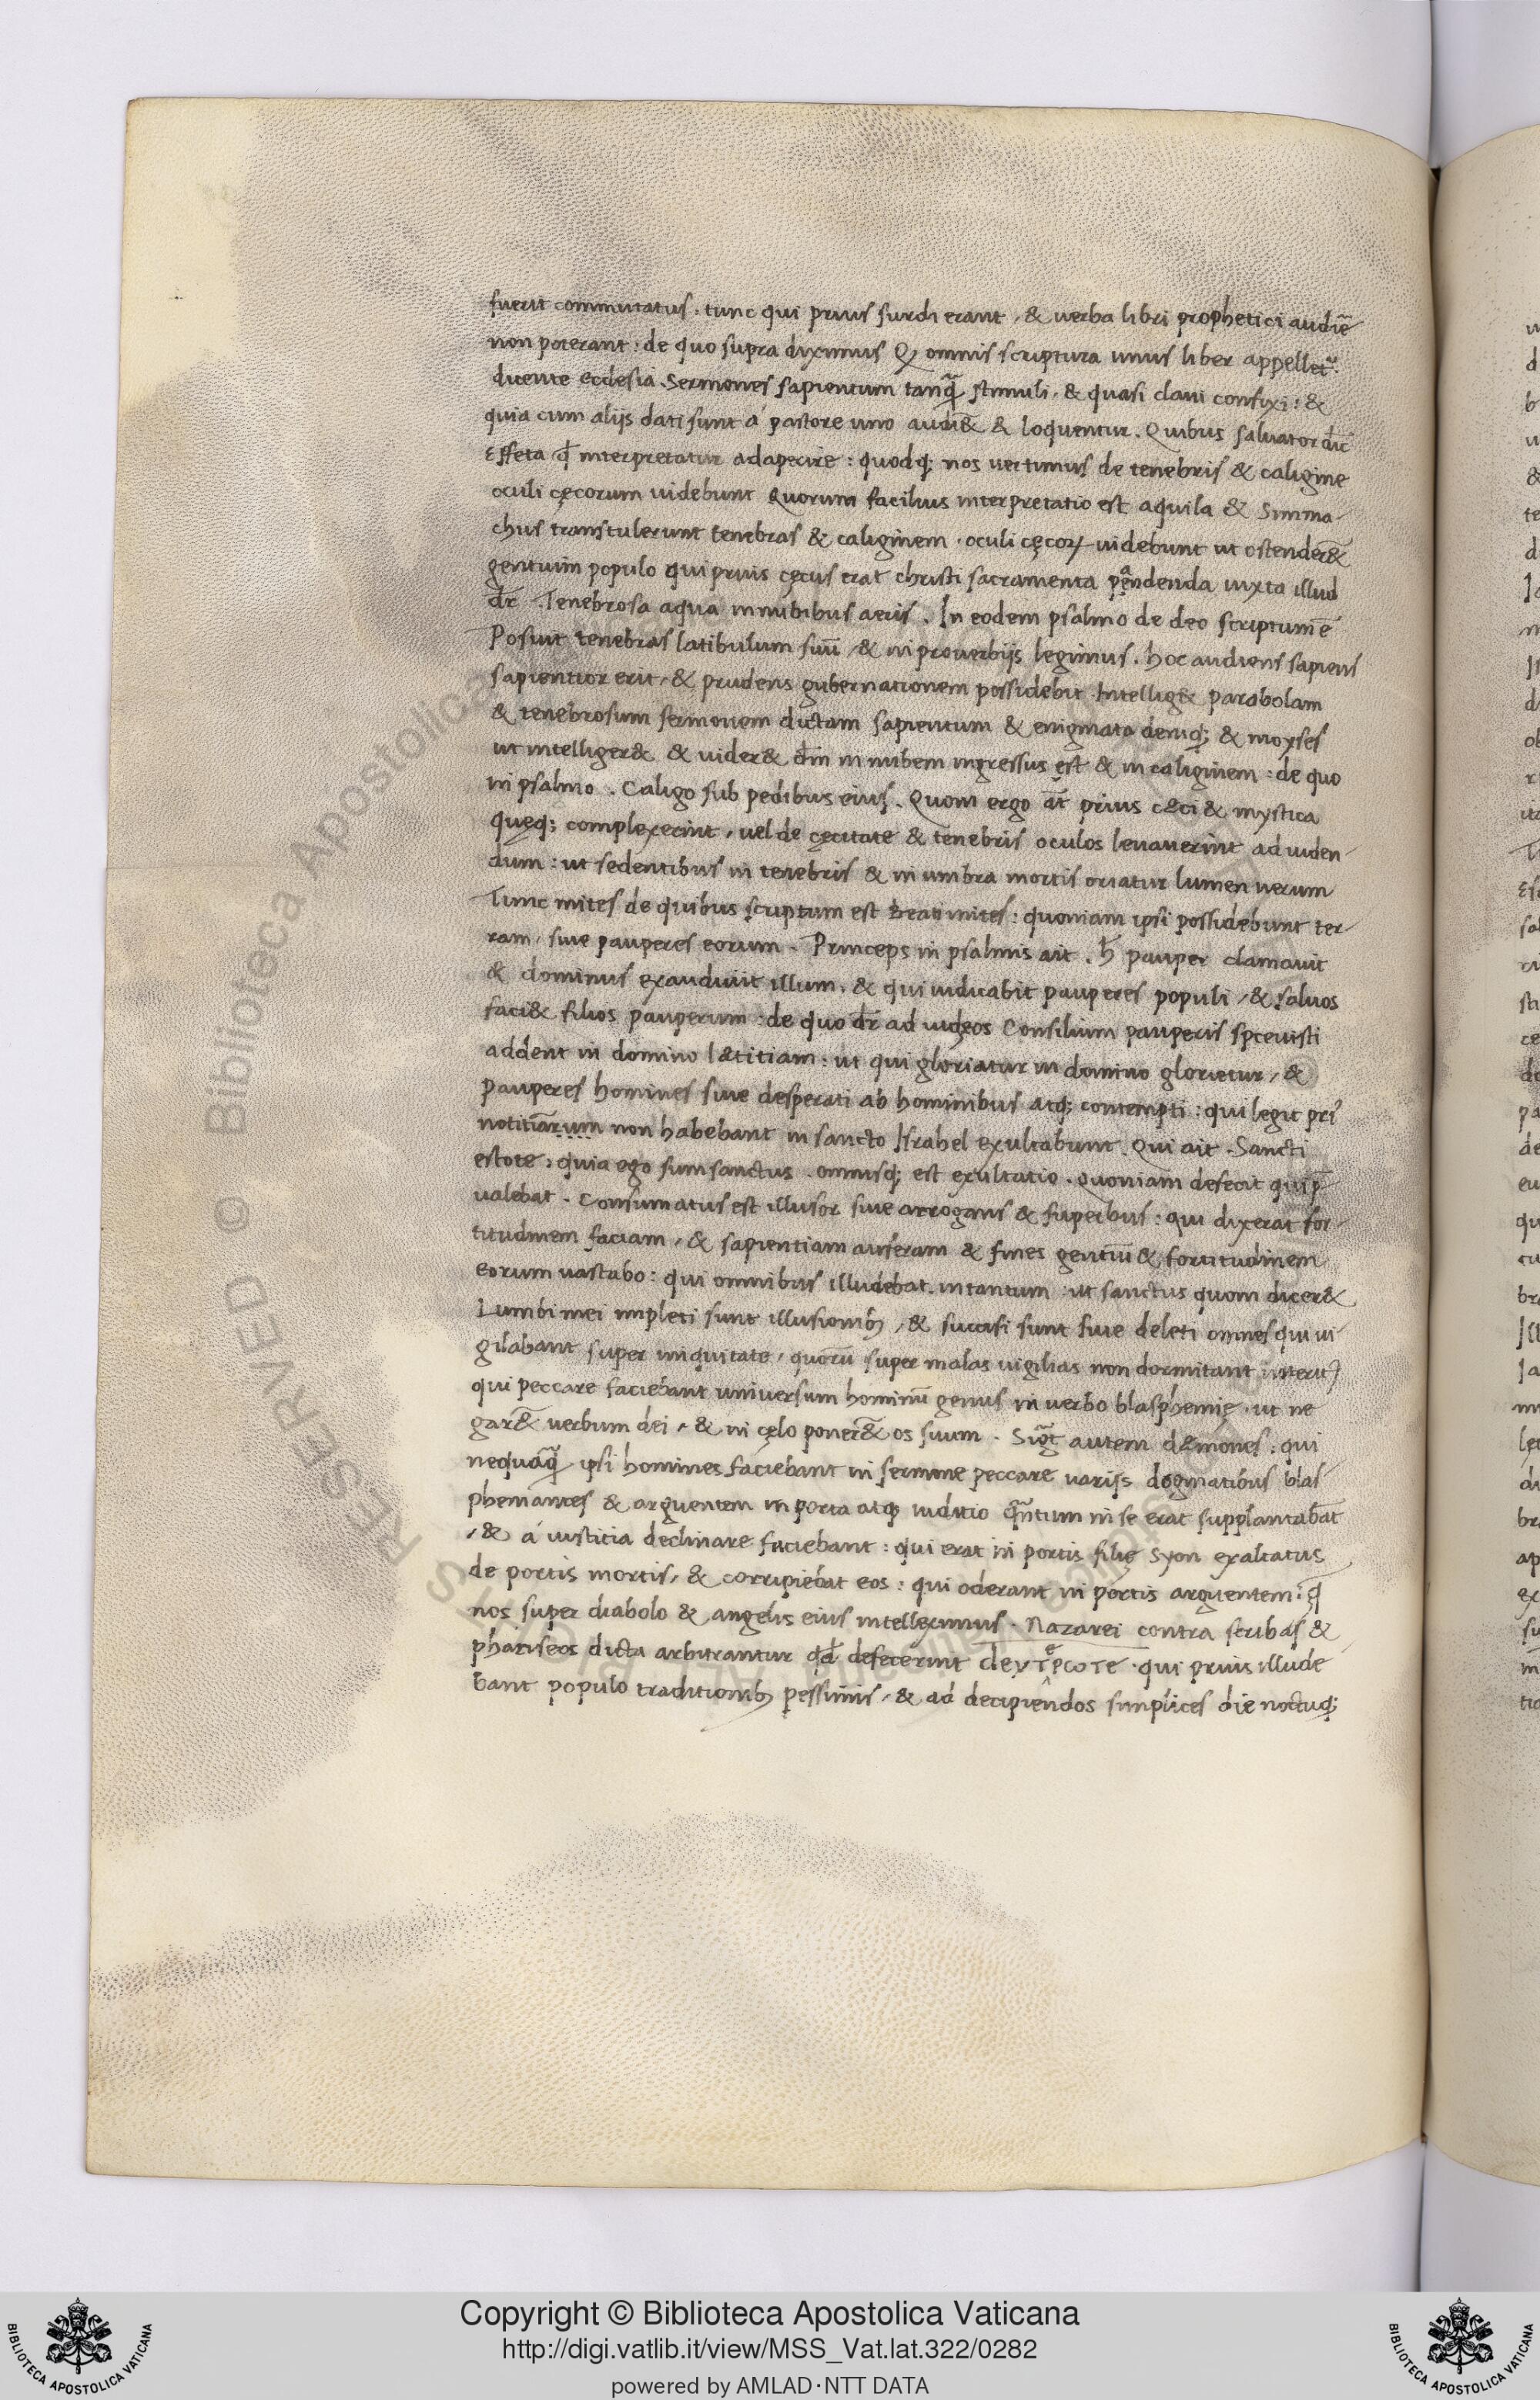 fuerit commutatus. tunc qui prius surdi erant, & uerba libri prophetici audir̃e
non poterant: de quo supra diximus Q, omnis scriptura unus liber appellet᷑.
dicente ecclesia. Sermones sapientum tanq̃ stimuli, & quasi claui confixi: &
quia cum alijs dati sunt á pastore uno audi&̃ & loquentur. Quibus saluator dic̄
Effeta qđ interpretatur adaperire: quodq; nos uertimus de tenebris & caligine
oculi cęcorum uidebunt Quorum facilius interpretatio est aquila & Simma
chus transtulerunt tenebras & caliginem. oculi cęcoꝝ uidebunt ut ostender&̃
gentium populo qui prius cęcus erat christi sacramenta pandenda iuxta illud
dr̄. Tenebrosa aqua in nubibus aeris. In eodem psalmo de deo scriptum ē
Posuit tenebras latibulum suū, & in prouerbijs legimus. hoc audiens sapiens
sapientior erit, & prudens gubernationem possidebit. Intellig& parabolam
& tenebrosum sermonem dictam sapientum & enigmata deniq; & moyses
ut intelliger& & uider& dm̄ in nubem ingressus est & in caliginem: de quo
in psalmo. Caligo sub pedibus eius. Quom ergo aũt prius cęci & mystica
quęq; complexerint, uel de cęcitate & tenebris oculos leuauerint ad uiden
dum: ut sedentibus in tenebris & in umbra mortis oriatur lumen uerum
Tunc mites de quibus scriptum est Beati mites: quoniam ipsi possidebunt ter
ram, siue pauperes eorum. Princeps in psalmis ait. h̄ pauper clamauit
& dominus exaudiuit illum. & qui iudicabit pauperes populi, & saluos
faci& filios pauperum: de quo dr̄ ad iudęos Consilium pauperis spreuisti
addent in domino lætitiam: ut qui gloriatur in domino glorietur, &
pauperes homines siue desperati ab hominibus atq; contempti: qui legit pri᷑
notitiarum non habebant in sancto Israhel exultabunt. Qui ait. Sancti
estote: quia ego sum sanctus. omnisq; est exultatio. Quoniam defecit qui p̄
ualebat. Consumatus est illusor siue arrogans & superbus: qui dixerat for
titudinem faciam, & sapientiam auferam & fines gentiū & fortitudinem
eorum uastabo: qui omnibus illudebat. intantum: ut sanctus quom dicer&
Lumbi mei impleti sunt illusionib;, & succisi sunt siue deleti omnes qui ui
gilabant super iniquitate, quorū super malas uigilias non dormitant
qui peccare faciebant uniuersum hominū genus in uerbo blasphemię. ut ne
gar&̃ uerbum dei, & in cęlo poner&̃ os suum. autem dæmones: qui
nequaq̃ ipsi homines faciebant in sermone peccare uarijs dogmatibus blas
phemantes & arguentem in porta atq; iuditio q̃ntum in se erat supplantab̄at
, & á iustitia declinare faciebant: qui erat in portis filię syon exaltatus
de portis mortis, & corripiebat eos: qui oderant in portis arguentem: qđ
nos super diabolo & angelis eius intelleximus. Nazarei contra scribas &
phariseos dicta arbitrantur qđ defecerint δευτερωτε. qui prius illude
bant populo traditionib; pessimis, & ad decipiendos simplices die noctuq;
Copyright © Biblioteca Apostolica Vaticana
http://digi.vatlib.it/view/MSS_Vat.lat.322/0282
powered by AMLAD·NTT DATA
BIBLIOTECA APOSTOLICA VATICANA
BIBLIOTECA APOSTOLICA VATICANA